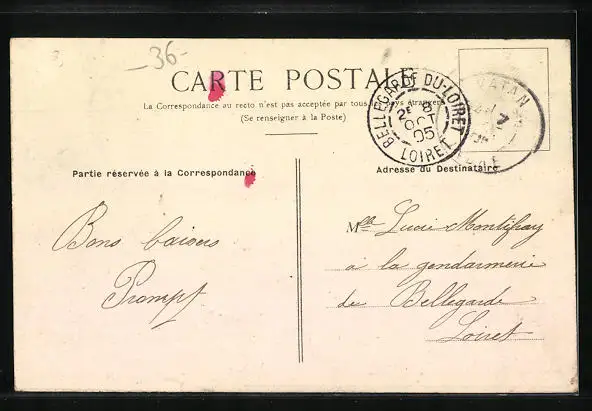 -36-
CARTE POSTALE
La Correspondance au recto n'est pas acceptée par tous pays étrangers
(Se renseigner à la Poste)
BELLEGARDE DU-LOIRET
2E 8
OCT
05
LOIRET
VATAN
7
Partie réservée à la Correspondance
Adresse du Destinataire
Bons baisers
Prompt
Mlle Lucie Montifray
a la gendarmerie
de Bellegarde
Loiret